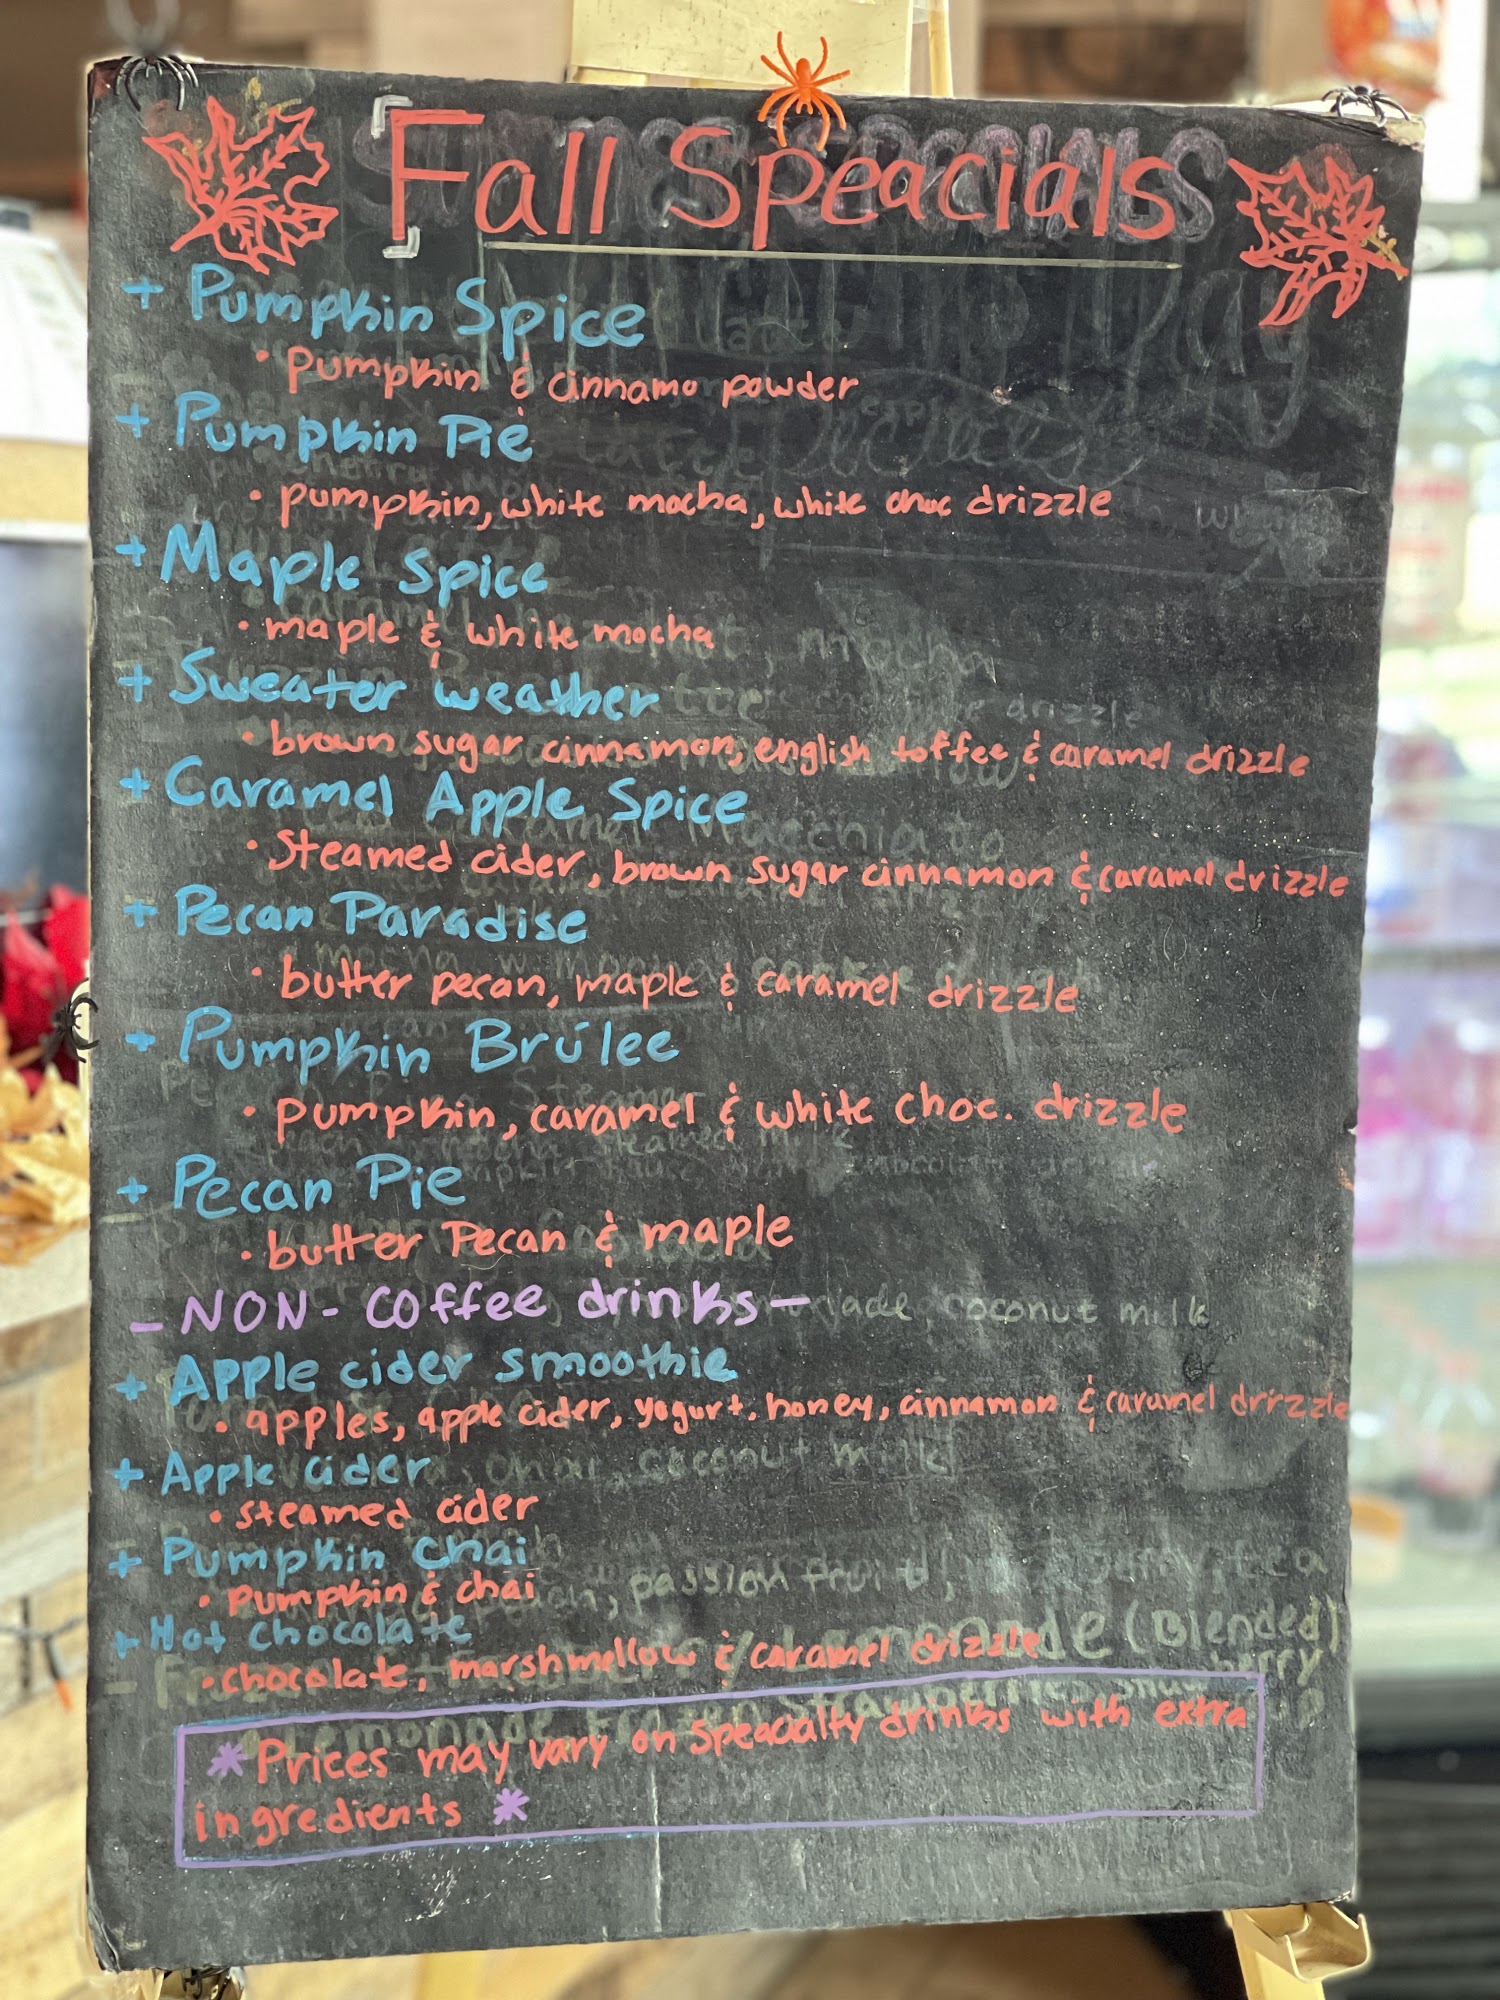 Fall Speacials
+ Pumpkin Spice
• Pumpkin & cinnamo powder
+ Pumpkin Pie
• pumpkin, white mocha, white choc drizzle
+ Maple Spice
• maple & white mocha
+ Sweater weather
• brown sugar cinnamon, english toffee & caramel drizzle
+ Caramel Apple Spice
• Steamed cider, brown sugar cinnamon & caramel drizzle
+ Pecan Paradise
• butter pecan, maple & caramel drizzle
+ Pumpkin Brúlee
• pumpkin, caramel & white choc. drizzle
+ Pecan Pie
• butter Pecan & maple
- NON- Coffee drinks -
+ Apple cider smoothie
• apples, apple cider, yogurt, honey, cinnamon & caramel drizzle
+ Apple cider
• steamed cider
+ Pumpkin Chai
• Pumpkin & chai
+ Hot chocolate
• chocolate, marshmellow & caramel drizzle
* Prices may vary on Speacialty drinks with extra
ingredients *